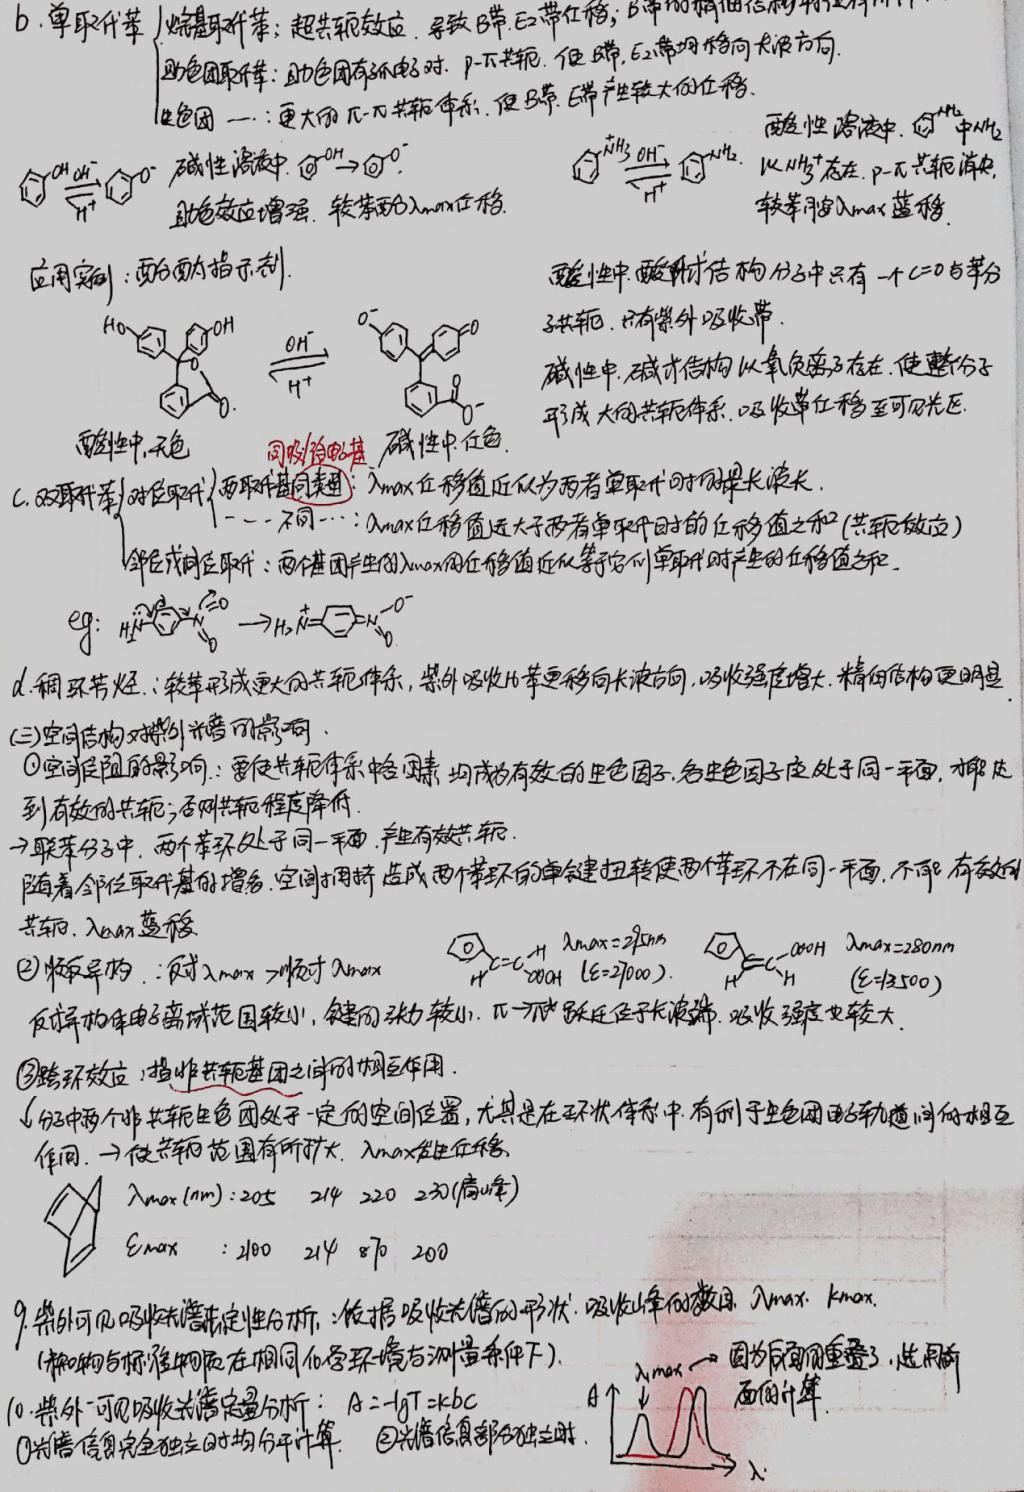 b. 单取代苯 烷基取代苯：超共轭效应. 导致B带.E2带位移；B带的精细结构
助色团取代苯：助色团有孤电子对. p-π共轭. 使B带, E2带均移向长波方向.
生色团 一…：更大的π-π共轭体系. 使B带. E带产生较大的位移.
OH OH⁻ H⁺ O⁻ 碱性溶液中. OH → O⁻.
助色效应增强. 较苯酚λmax位移.
NH₃⁺ OH⁻ H⁺ NH₂. 酸性溶液中. NH₂中NH₂
以NH₃⁺存在. p-π共轭消失.
较苯胺λmax蓝移.
应用实例：酚酞指示剂.
HO OH O O. OH⁻ H⁺ O⁻ O O O⁻
酸性中.无色 碱性中.红色.
酸性中.酸式结构分子中只有一个C=O与苯分
子共轭. 只有紫外吸收带.
碱性中. 碱式结构以氧负离子存在. 使整分子
形成大的共轭体系. 吸收带位移至可见光区.
同吸/给电子基
c. 双取代苯 对位取代 两取代基同类型：λmax位移值近似为两者单取代时的最长波长.
---- 不同---：λmax位移值远大于两者单取代时的位移值之和(共轭效应)
邻位或间位取代：两个基团产生的λmax的位移值近似等于它们单取代时产生的位移值之和.
eg: H₂N N O O → H₂N⁺= =N O⁻ O
d. 稠环芳烃：较苯形成更大的共轭体系, 紫外吸收比苯更移向长波方向, 吸收强度增大. 精细结构更明显.
(三)空间结构对紫外光谱的影响.
①空间位阻的影响：要使共轭体系中各因素均成为有效的生色因子. 各生色因子应处于同一平面. 才能达
到有效的共轭；否则共轭程度降低.
→联苯分子中. 两个苯环处于同一平面. 产生有效共轭.
随着邻位取代基的增多. 空间拥挤造成两个苯环的单键扭转使两个苯环不在同一平面, 不能有效的
共轭. λmax蓝移
②顺反异构：反式λmax>顺式λmax
H C=C H COOH λmax=295nm (ε=27000). H C=C COOH H λmax=280nm (ε=13500)
反式异构体电子离域范围较小, 键的张力较小. π→π* 跃迁位于长波端. 吸收强度也较大.
③跨环效应：指非共轭基团之间的相互作用.
分子中两个非共轭生色团处于一定的空间位置, 尤其是在环状体系中. 有利于生色团电子轨道间的相互
作用. →使共轭范围有所扩大. λmax发生位移.
λmax(nm)：205 214 220 230(肩峰)
εmax ：2100 214 870 200
9. 紫外可见吸收光谱法定性分析：依据吸收光谱的形状. 吸收峰的数目. λmax. kmax.
(待测物与标准物质在相同化学环境与测量条件下).
10. 紫外-可见吸收光谱定量分析： A=-lgT=kbc
①光谱信息完全独立时均分开计算. ②光谱信息部分独立时.
A λmax → 因为后面的重叠了, 选用前
面的计算.
λ.